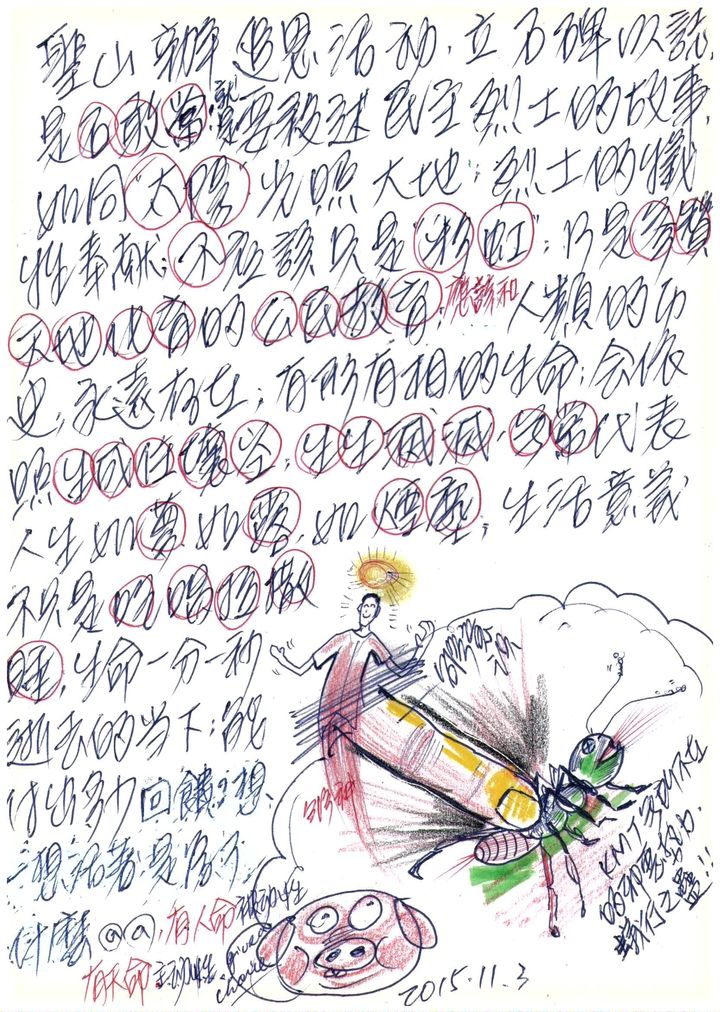 聖山辦追思活動,立石碑以誌,
是否敢當,就是要敘述民主烈士的故事,
如同"太陽"光照大地;烈士的犧
牲奉獻;不應該只是"彩虹";乃是
天地化育的公民教育,應該和人類的歷
史,永遠存在;有形有相的生命;會依
照生成住壞空;生生滅滅,無常代表
人生如夢如露,如煙塵;生活意義
不只是吃喝拉撒
睡,生命一分一秒
逝去的當下;能
付出多少回饋?想
想活著是為了
什麼@@,有人命被動性
有天命主動性
2015.11.3